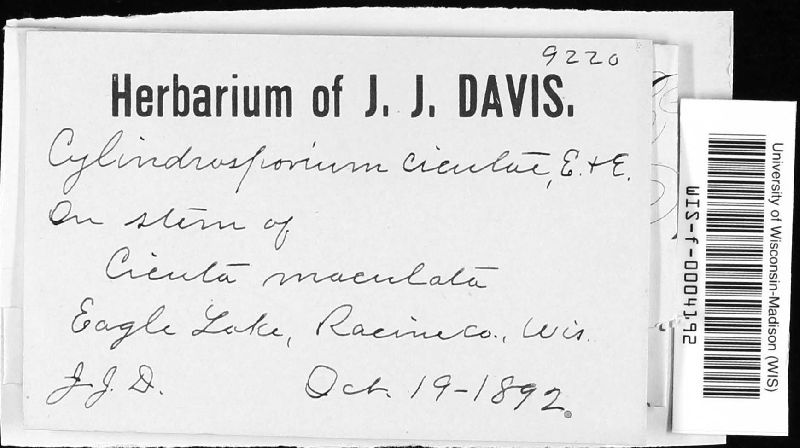 9220
Herbarium of J. J. DAVIS.
Cylindrosporium cicutae, E. & E.
On stem of
Cicuta maculata
Eagle Lake, Racine co., Wis.
J. J. D. Oct. 19-1892.
University of Wisconsin-Madison (WIS)
WIS-f-0004192